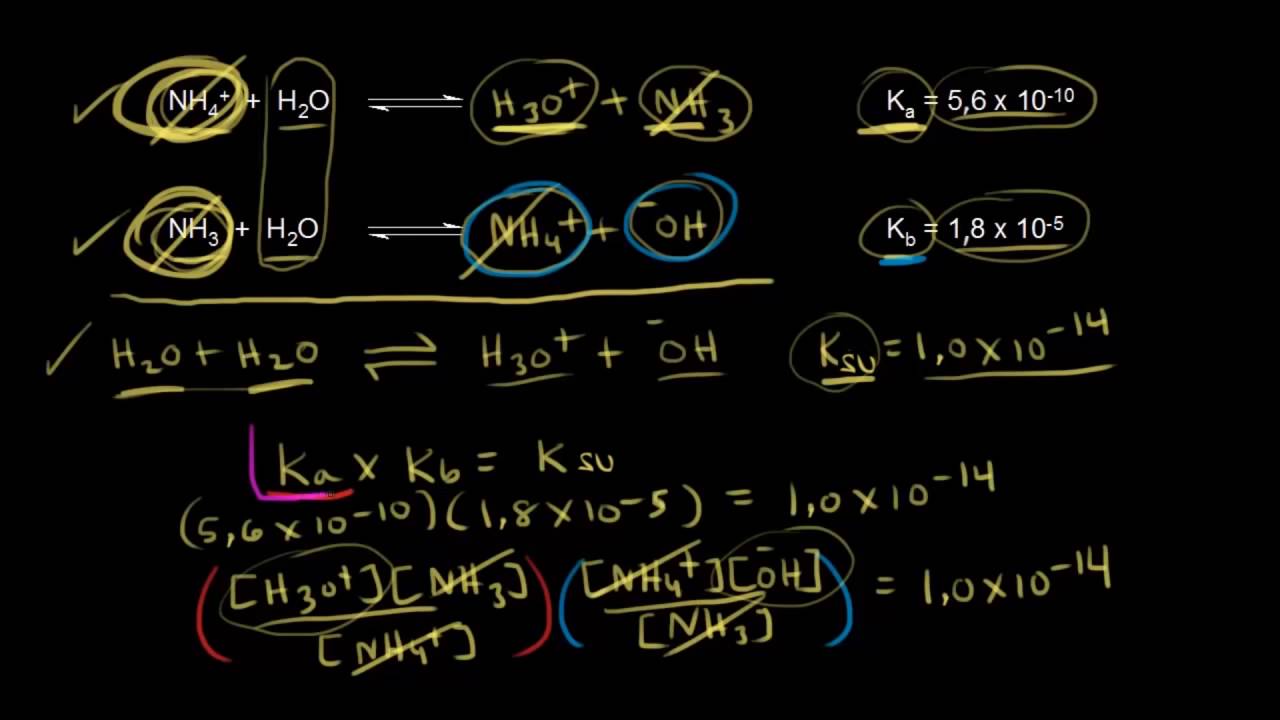 NH₄⁺ + H₂O ⇌ H₃O⁺ + NH₃ Kₐ = 5,6 x 10⁻¹⁰
NH₃ + H₂O ⇌ NH₄⁺ + ⁻OH K_b = 1,8 x 10⁻⁵
H₂O + H₂O ⇌ H₃O⁺ + ⁻OH K_su = 1,0 x 10⁻¹⁴
Ka x Kb = K su
(5,6 x 10⁻¹⁰)(1,8 x 10⁻⁵) = 1,0 x 10⁻¹⁴
([H₃O⁺][NH₃]) ([NH₄⁺][⁻OH]) = 1,0 x 10⁻¹⁴
[NH₄⁺] [NH₃]